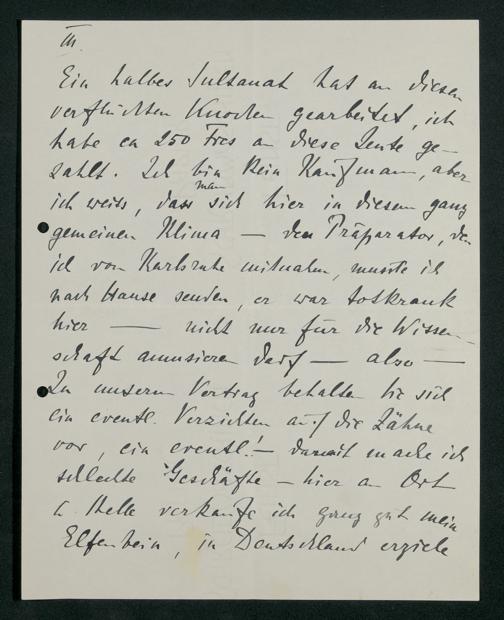 III.
Ein halbes Sultanat hat an diesen
verfluchten Knochen gearbeitet, ich
habe ca 250 Frcs an diese Leute ge-
zahlt. Ich bin kein Kaufmann, aber
man
ich weiss, dass sich hier in diesem ganz
gemeinen Klima — den Präparator, den
ich von Karlsruhe mitnahm, musste ich
nach Hause senden, er war totkrank
hier — nicht nur für die Wissen-
schaft amusieren darf — also —
In unserm Vertrag behalten Sie sich
ein eventl. Verzichten auf die Zähne
vor, ein eventl.! — damit mache ich
schlechte Geschäfte — hier an Ort
u Stelle verkaufe ich ganz gut mein
Elfenbein, in Deutschland erziele